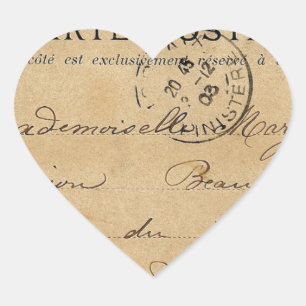 RTE POST
côté est exclusivement réservé à
20 45
8-12
03
MINISTERE
ademoiselle Mar
ion Beau
du